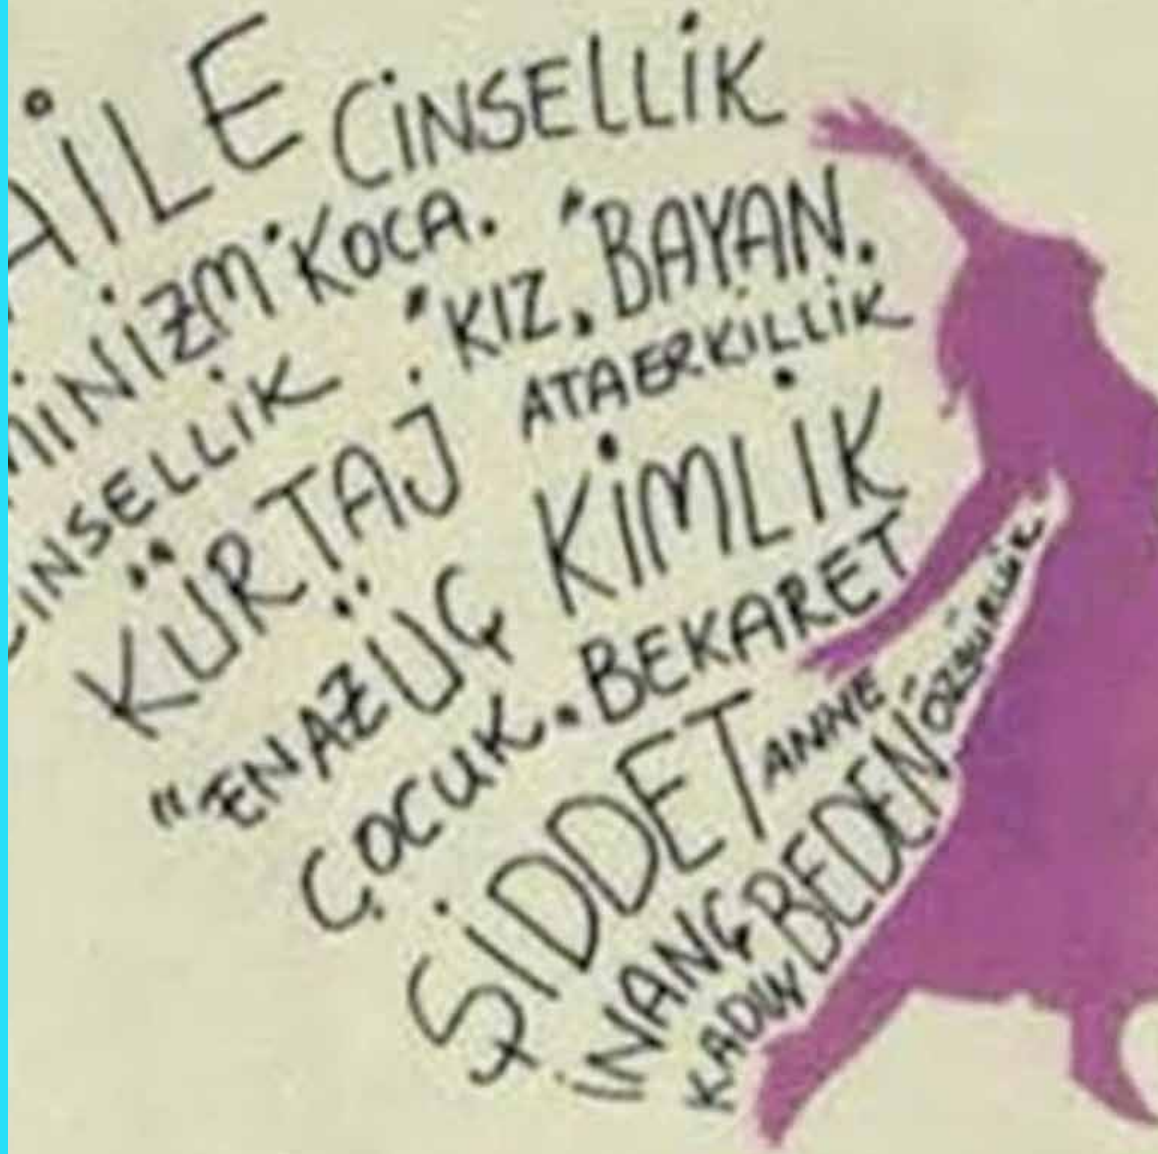 AİLE CİNSELLİK
MİNİZM "KOCA."
"KIZ." "BAYAN."
CİNSELLİK
ATAERKİLLİK
KÜRTAJ
KİMLİK
"EN AZ ÜÇ
ÇOCUK." BEKARET
ŞİDDET ANNE
İNANÇ BEDEN ÖZGÜRLÜK
KADIN